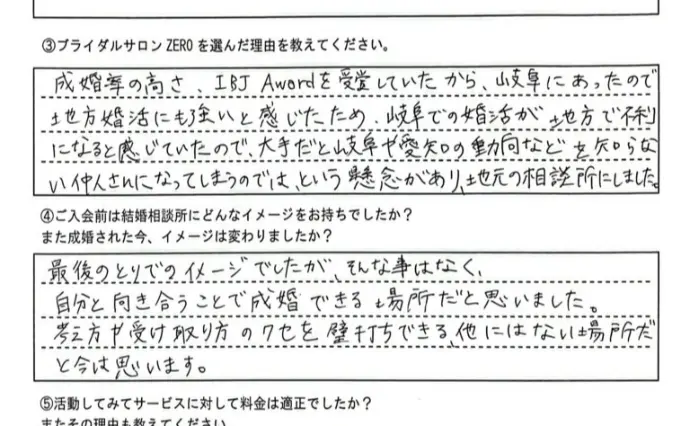 ③ブライダルサロンZEROを選んだ理由を教えてください。
成婚率の高さ、IBJ Awordを受賞していたから、岐阜にあったので
地方婚活にも強いと感じたため、岐阜での婚活が地方で不利
になると感じていたので、大手だと岐阜や愛知の動向などを知らな
い仲人さんになってしまうのでは、という懸念があり、地元の相談所にしました。
④ご入会前は結婚相談所にどんなイメージをお持ちでしたか？
また成婚された今、イメージは変わりましたか？
最後のとりでのイメージでしたが、そんな事はなく、
自分と向き合うことで成婚できる場所だと思いました。
考え方や受け取り方のクセを壁打ちできる、他にはない場所だ
と今は思います。
⑤活動してみてサービスに対して料金は適正でしたか？
またその理由も教えてください